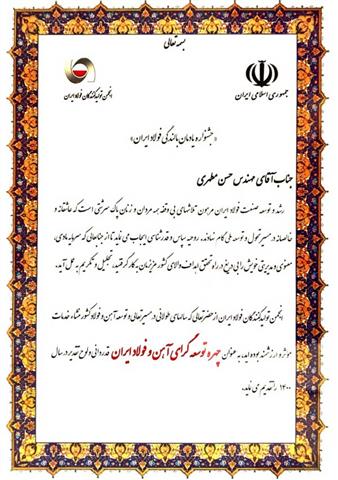 بسمه تعالی
جمهوری اسلامی ایران
انجمن تولیدکنندگان فولاد ایران
«جشنواره یادمان بالندگی فولاد ایران»
جناب آقای مهندس حسن مطهری
رشد و توسعه صنعت فولاد ایران مرهون تلاشهای بی وقفه همه مردان و زنان پاک سرشتی است که عاشقانه و
خالصانه در مسیر تحول و توسعه ملی گام نهادند. روحیه سپاس و قدرشناسی ایجاب می نماید تا از جنابعالی که سرمایه مادی،
معنوی و مدیریتی خویش را بی دریغ در راه تحقق اهداف والای کشور عزیزمان به کار گرفتید، تجلیل و تکریم به عمل آید.
انجمن تولیدکنندگان فولاد ایران از حضرتعالی که سالهای طولانی در مسیر تعالی و توسعه آهن و فولاد کشور منشاء خدمات
موثر و ارزشمند بوده اید، به عنوان چهره توسعه گرای آهن و فولاد ایران قدردانی و لوح تقدیر در سال
۱۴۰۰ را تقدیم می نماید.